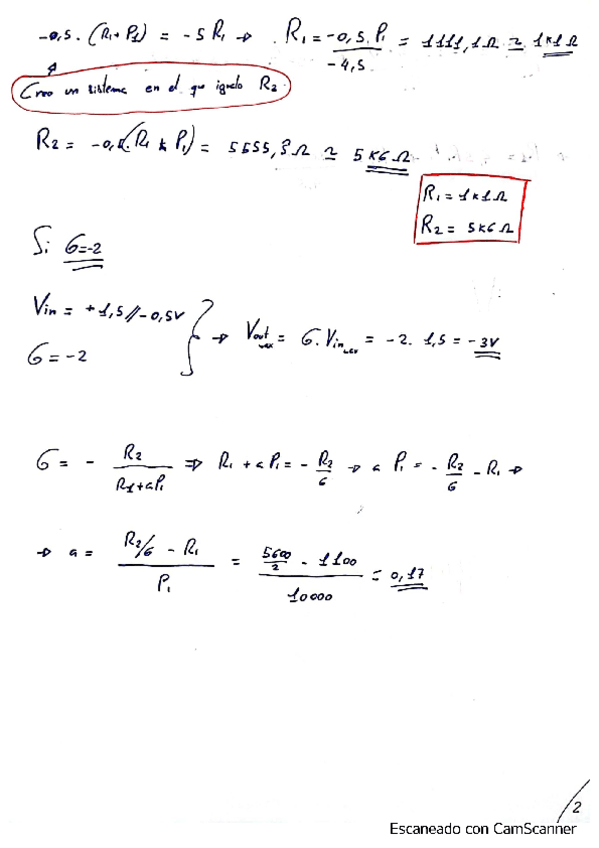 -0,5 . (R1 + P1) = -5 R1 → R1 = -0,5 . P1 / -4,5 = 1111,1 Ω ≃ 1k1 Ω
Creo un sistema en el que igualo R2
R2 = -0,5(R1 + P1) = 5555,5 Ω ≃ 5k6 Ω
R1 = 1k1 Ω
R2 = 5k6 Ω
Si G=-2
Vin = +1,5//-0,5V
G = -2
→ Vout max = G. Vin max = -2. 1,5 = -3V
G = - R2 / R1+aP1 ⇒ R1 + a P1 = - R2/G → a P1 = - R2/G - R1 →
→ a = R2/G - R1 / P1 = 5600/2 - 1100 / 10000 = 0,17
/2
Escaneado con CamScanner